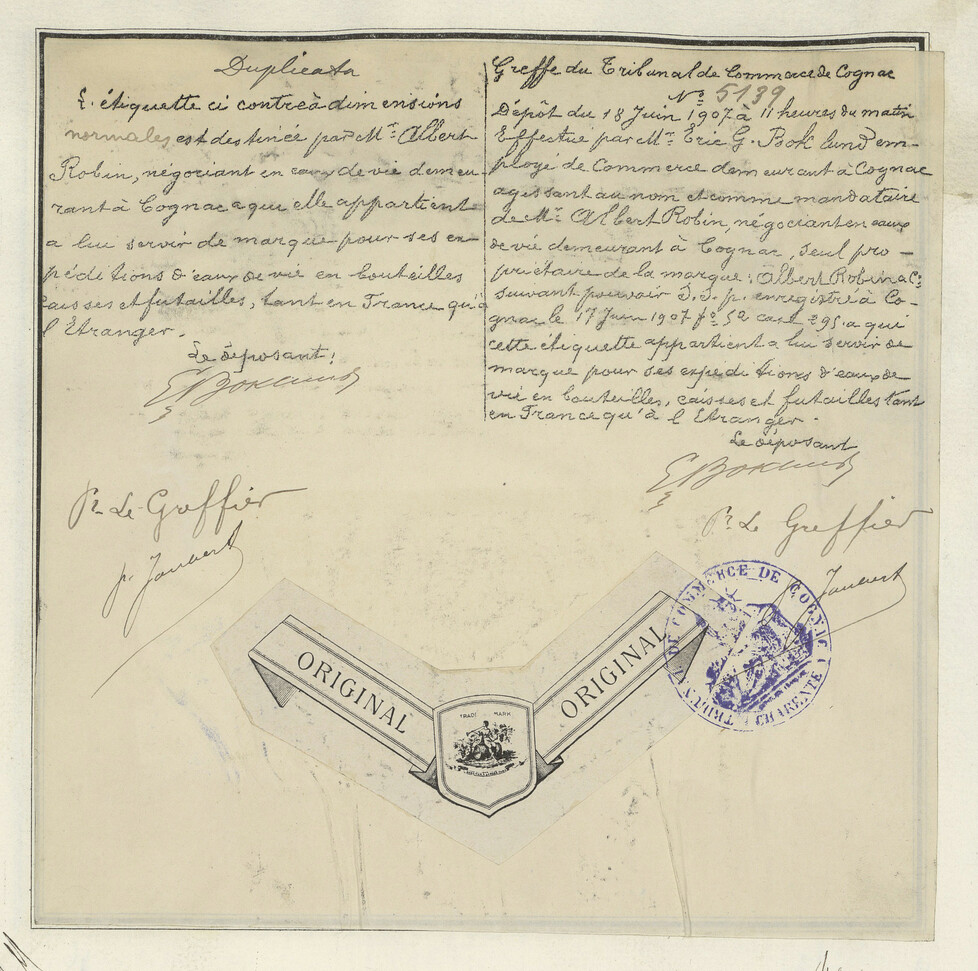 Duplicata
L'étiquette ci contre à dimensions
normales est destinée par Mr. Albert
Robin, négociant en eaux de vie demeu-
rant à Cognac a qui elle appartient
a lui servir de marque pour ses ex
péditions d'eaux de vie en bouteilles
caisses et futailles, tant en France qu'à
l'Etranger.
Le déposant!
Pr. Le Greffier
Greffe du Tribunal de Commerce de Cognac
No. 5139
Dépôt du 18 Juin 1907 à 11 heures du matin
Effectué par Mr. Eric G. Boklund em-
ployé de Commerce demeurant à Cognac
agissant au nom et comme mandataire
de Mr. Albert Robin, négociant en eaux
de vie demeurant à Cognac, seul pro-
priétaire de la marque: Albert Robin & Co.
suivant pouvoir S.S.p. enregistré à Co-
gnac le 17 Juin 1907 fo. 52 case 295 a qui
cette étiquette appartient a lui servir de
marque pour ses expeditions d'eaux de
vie en bouteilles, caisses et futailles tant
en France qu'à l'Etranger.
Le déposant
Pr. Le Greffier
TRIBAL DE COMMERCE DE COGNAC
(CHARENTE)
ORIGINAL
ORIGINAL
TRADE MARK